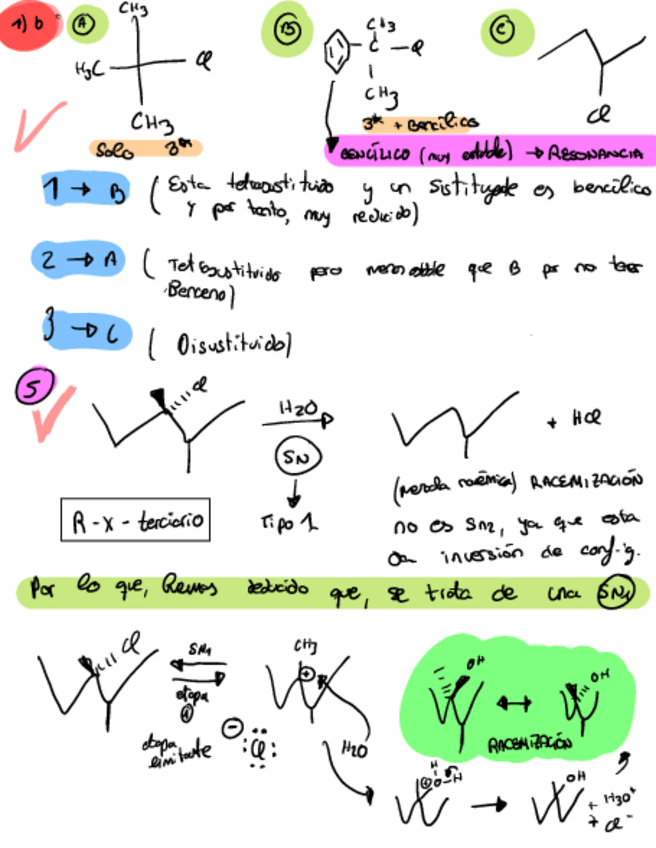 1) b
A
CH3
H3C
Cl
CH3
Solo 3º
B
CH3
C - Cl
CH3
3º + Bencílico
C
Cl
BENCÍLICO (muy estable) → RESONANCIA
1 → B (Esta tetrasustituido y un sistituyete es bencílico
y por tanto, muy reducido)
2 → A (Tetrasustituido pero menos estable que B por no tener
Benceno)
3 → C (Disustituido)
5
Cl
H2O
SN
Tipo 1
+ HCl
R-X-terciario
(mezcla racémica) RACEMIZACIÓN
no es SN2, ya que esta
da inversión de config.
Por lo que, hemos deducido que, se trata de una SN1
Cl
SN1
etapa
1
etapa
limitante
CH3
+
- Cl
H2O
OH
OH
RACEMIZACIÓN
H
+ O - H
OH
+ H3O+
+ Cl-